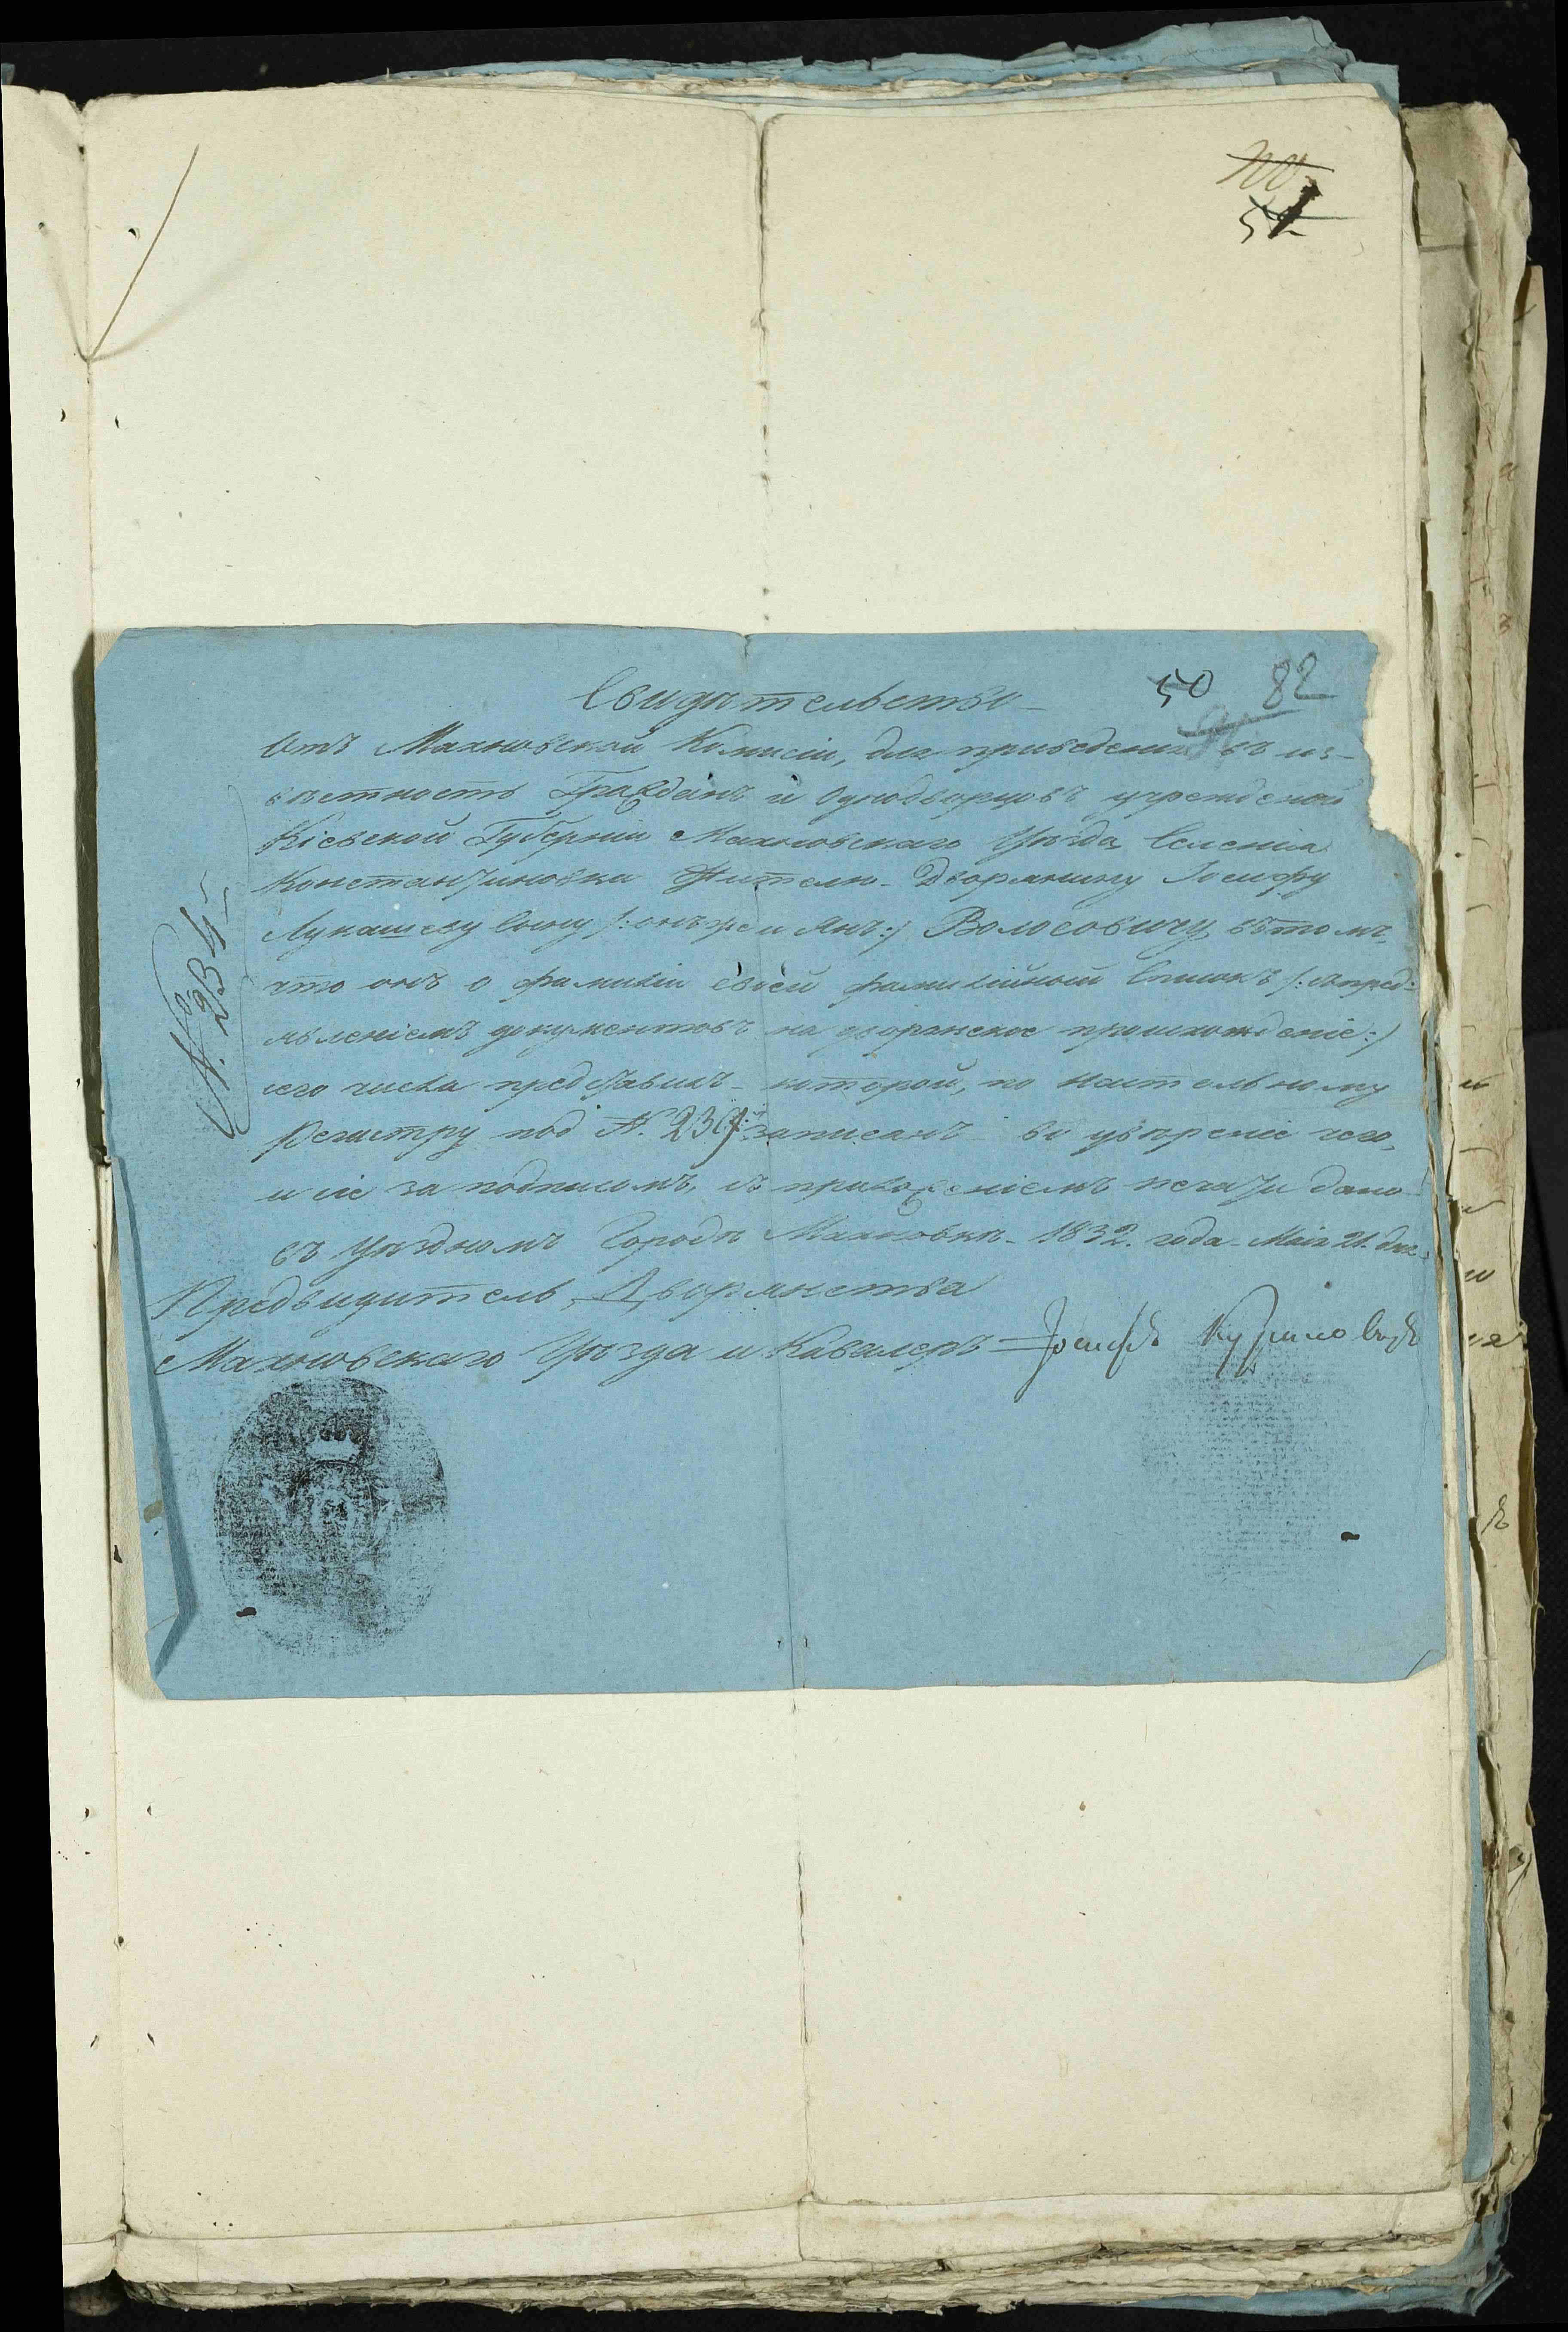 52
50 82
Свидѣтельство
Отъ Махновской Комисіи, для приведенія въ из-
вѣстность Гражданъ и Однодворцовъ учрежденой
Кіевской Губерніи Махновскаго Уѣзда Селенія
Константиновки Жителю Дворянину Іосифу
Лукашему Сыну /: онъ же и Янъ :/ Волосовичу, въ томъ,
что онъ о фамиліи своей фамилійной Списокъ /: съ пред-
явленіемъ документовъ на дворанское происхожденіе :/
сего числа представилъ которой, по настольному
Регистру под N. 239 записанъ во увѣреніе чего,
и сіе за подписомъ, съ приложеніемъ печати дано
въ Уѣздномъ Городѣ Махновкѣ 1832. года Маія 21. дня
Предвидитель Дворянства
Махновскаго Уѣзда и Кавалеръ Іосифъ
N. 254